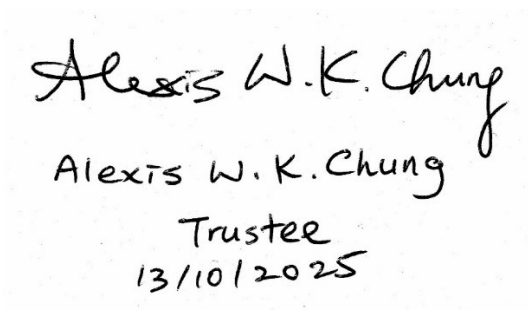 Alexis W.K. Chung
Alexis W.K. Chung
Trustee
13/10/2025